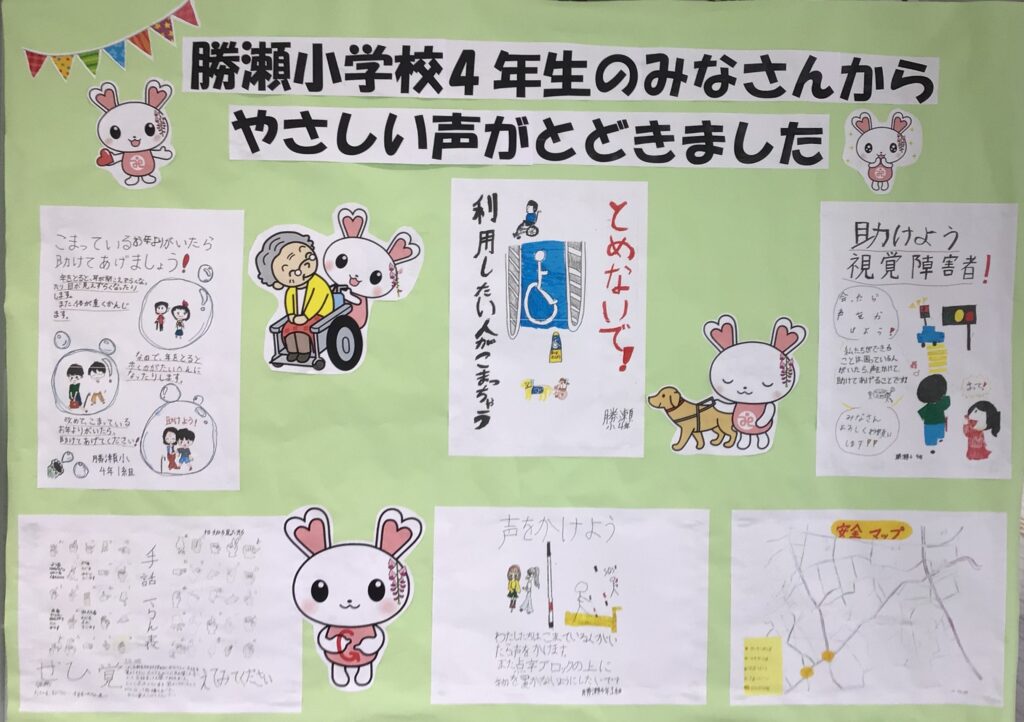 勝瀬小学校4年生のみなさんから
やさしい声がとどきました
こまっているお年よりがいたら
助けてあげましょう!
年をとると、耳が聞こえづらくなっ
たり目が見えずらくなったり
します。
また体が重くかんじ
ます。
なので、年をとると
歩くのがたいへんに
なったりします。
改めて、こまっている
お年よりがいたら、
助けてあげてください!
助けよう!
勝瀬小
4年1組
とめないで!
利用したい人がこまっちゃう
勝瀬
小4年
助けよう
視覚障害者!
会ったら
声をか
けよう!
私たちができる
ことは困っている人
がいたら、声をかけて、
助けてあげることです
まって!
みなさん
よろしくお願い
します!!
手話一らん表
ぜひ覚えてみてください
声をかけよう
わたしたちはこまっている人がい
たら声をかけます
また点字ブロックの上に
物を置かないようにしたいです
勝瀬小4年1組
安全マップ